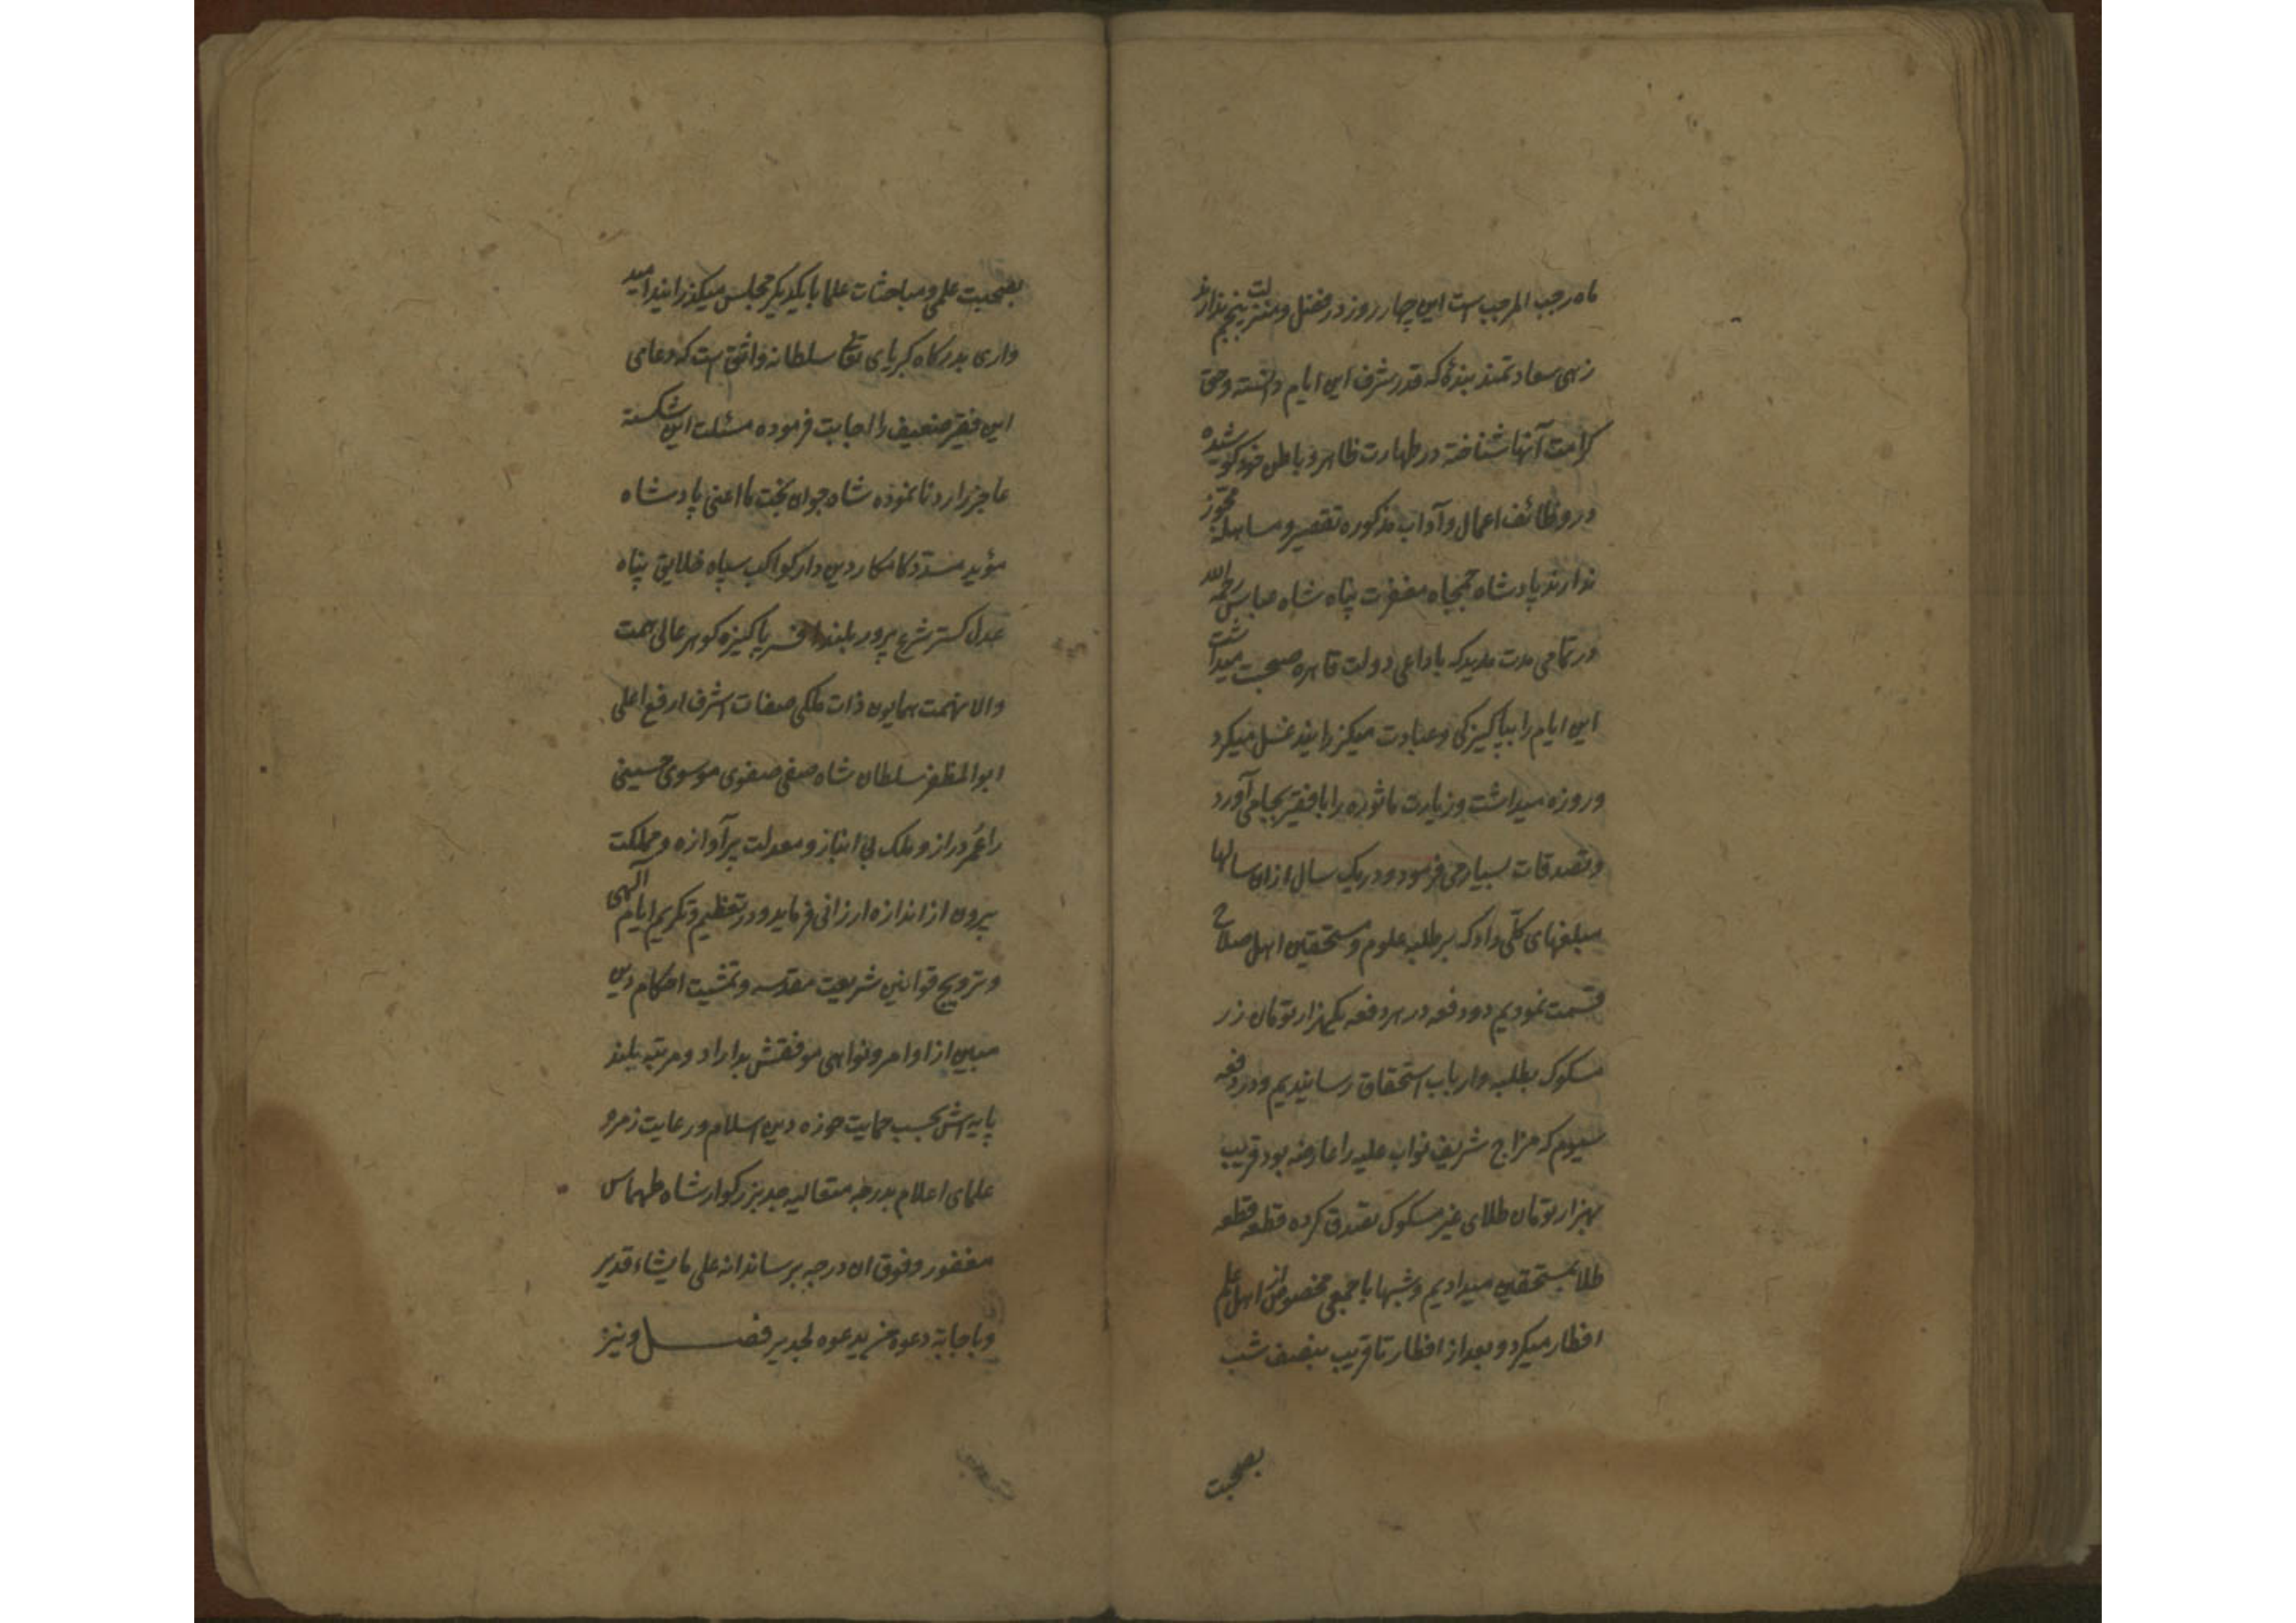 ماه رجب المرجب است این چهار روز در فضل و منزلت پنجم ندارند
زهی سعادتمند بندۀ که قدر شرف این ایام دانسته و حق
کرامت آنها شناخته در طهارت ظاهر و باطن خود کوشیده
در وظائف اعمال و آداب مذکوره تقصیر و مساهله مجوز
ندارند پادشاه جمجاه مغفرت پناه شاه عباس رحمه الله
در تمامی مدت مدید که با داعی دولت قاهره صحبت میداشت
این ایام را بپاکیزکی و عبادت میکذرانید غسل میکرد
و روزه میداشت و زیارت ماثوره را با فقیر بجا می آورد
و تصدقات بسیار می فرمود و در یک سال ازان سالها
مبلغهای کلّی داد که بر طلبه علوم و مستحقین اهل صلاح
قسمت نمودیم دو دفعه در هر دفعه یکهزار تومان زر
مسکوک بطلبه و ارباب استحقاق رسانیدیم و در دفعه
سیوم که مزاج شریف نواب علیه را عارضه بود قریب
بهزار تومان طلای غیر مسکوک تصدق کرده قطعه قطعه
طلا بمستحقین میدادیم و شبها با جمعی مخصوص از اهل علم
افطار میکرد و بعد از افطار تا قریب بنصف شب
بصحبت
بصحبت علمی و مباحثات علما با یکدیکر مجلس میکذرانید امید
واری بدرکاه کبریای تعالی سلطانه واثق است که دعای
این فقیر ضعیف را اجابت فرموده مسئلت این شکسته
عاجز را رد نا نموده شاه جوان بخت ما اعنی پادشاه
مؤید مسدد کامکار دین دار کواکب سپاه خلایق پناه
عدل کستر شرع پرور بلند افسر پاکیزه کوهر عالی همت
والا نهمت همایون ذات ملکی صفات اشرف ارفع اعلی
ابو المظفر سلطان شاه صفی صفوی موسوی حسینی
را عُمر دراز و ملک بی انباز و معدلت پر آوازه و مملکت
بیرون از اندازه ارزانی فرماید و در تعظیم و تکریم ایام آلهی
و ترویج قوانین شریعت مقدسه و تمشیت احکام دین
مبین از اوامر و نواهی موفقش بداراد و مرتبه بلند
پایه اش بحسب حمایت حوزه دین اسلام و رعایت زمره
علمای اعلام بدرجه متعالیه جد بزرکوار شاه طهماس
مغفور و فوق ان درجه برساند انه علی ما یشاء قدیر
و باجابة دعوة من یدعوه لجدیر فصل و نیز